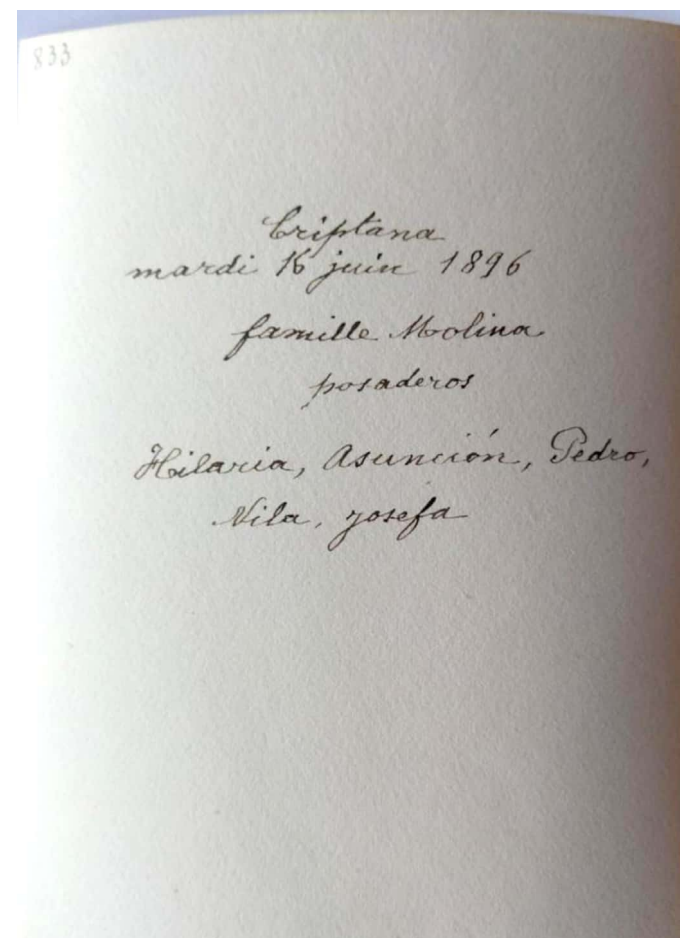 833
Criptana
mardi 16 juin 1896
famille Molina
posaderos
Hilaria, Asunción, Pedro,
Vila, Josefa